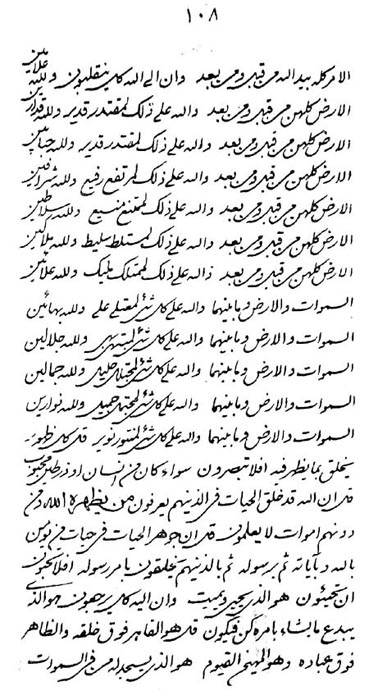 ١٠٨
الامر كله بيد الله من قبل ومن بعد وان الى الله كل ينقلبون ولله علامين
الارض كلهن من قبل ومن بعد والله على ذلك لمقتدر قدير ولله قدارين
الارض كلهن من قبل ومن بعد والله على ذلك لمقتدر قدير ولله
الارض كلهن من قبل ومن بعد والله على ذلك لمرتفع رفيع ولله
الارض كلهن من قبل ومن بعد والله على ذلك لممتنع منيع ولله سلاطين
الارض كلهن من قبل ومن بعد والله على ذلك لمستلط سليط ولله ملاكين
الارض كلهن من قبل ومن بعد والله ذلك لمتملك مليك ولله علائين
السموات والارض وما بينهما والله على كل شئ لمقتلى على ولله بهائين
السموات والارض وما بينهما والله على كل شئ لمبتهى بهى ولله جلالين
السموات والارض وما بينهما والله على كل شئ لمجتلل جليل ولله جمالين
السموات والارض وما بينهما والله على كل شئ لمجتمل جميل ولله نوارين
السموات والارض وما بينهما والله على كل شئ لمتنور نوير قل كل ظهور
سيخلق بما يظهر فيه افلا تبصرون سواء كان من انسان او ذر طين محبوب
قل ان الله قد خلق الحيات فى الذينهم يعرفون من يظهره الله ومن
دونهم اموات لا يعلمون قل ان جوهر الحيات فى حيات من يومن
بالله وباياته ثم برسوله ثم بالذينهم يخلقون بامر رسوله افلا تحبون
ان تحيئون هو الذى يحيى ويميت وان اليه كل يرجعون هو الذى
يبدع ما يشاء بامره كن فيكون قل هو القاهر فوق خلقه والظاهر
فوق عباده وهو المهيمن القيوم هو الذى يسجد له من فى السموات